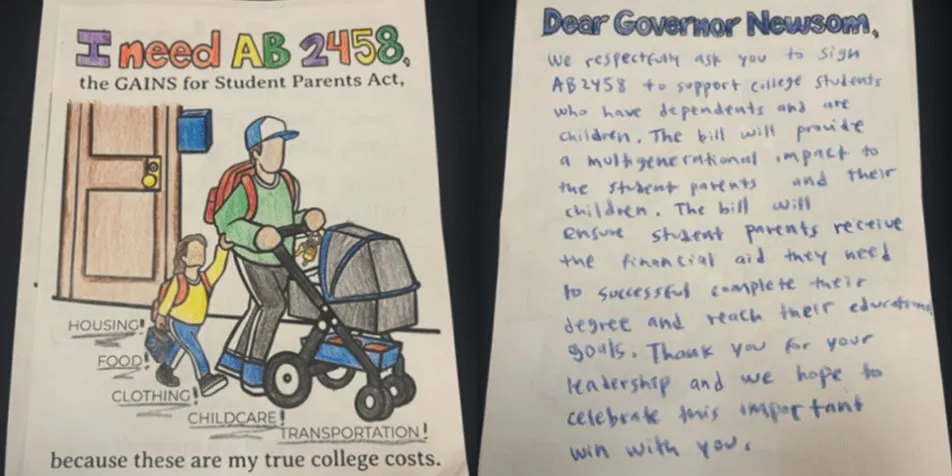 I need AB 2458,
the GAINS for Student Parents Act,
HOUSING!
FOOD!
CLOTHING!
CHILDCARE!
TRANSPORTATION!
because these are my true college costs.
Dear Governor Newsom,
We respectfully ask you to sign
AB 2458 to support college students
who have dependents and are
children. The bill will provide
a multigenerational impact to
the student parents and their
children. The bill will
ensure student parents receive
the financial aid they need
to successful complete their
degree and reach their educational
goals. Thank you for your
leadership and we hope to
celebrate this important
win with you.